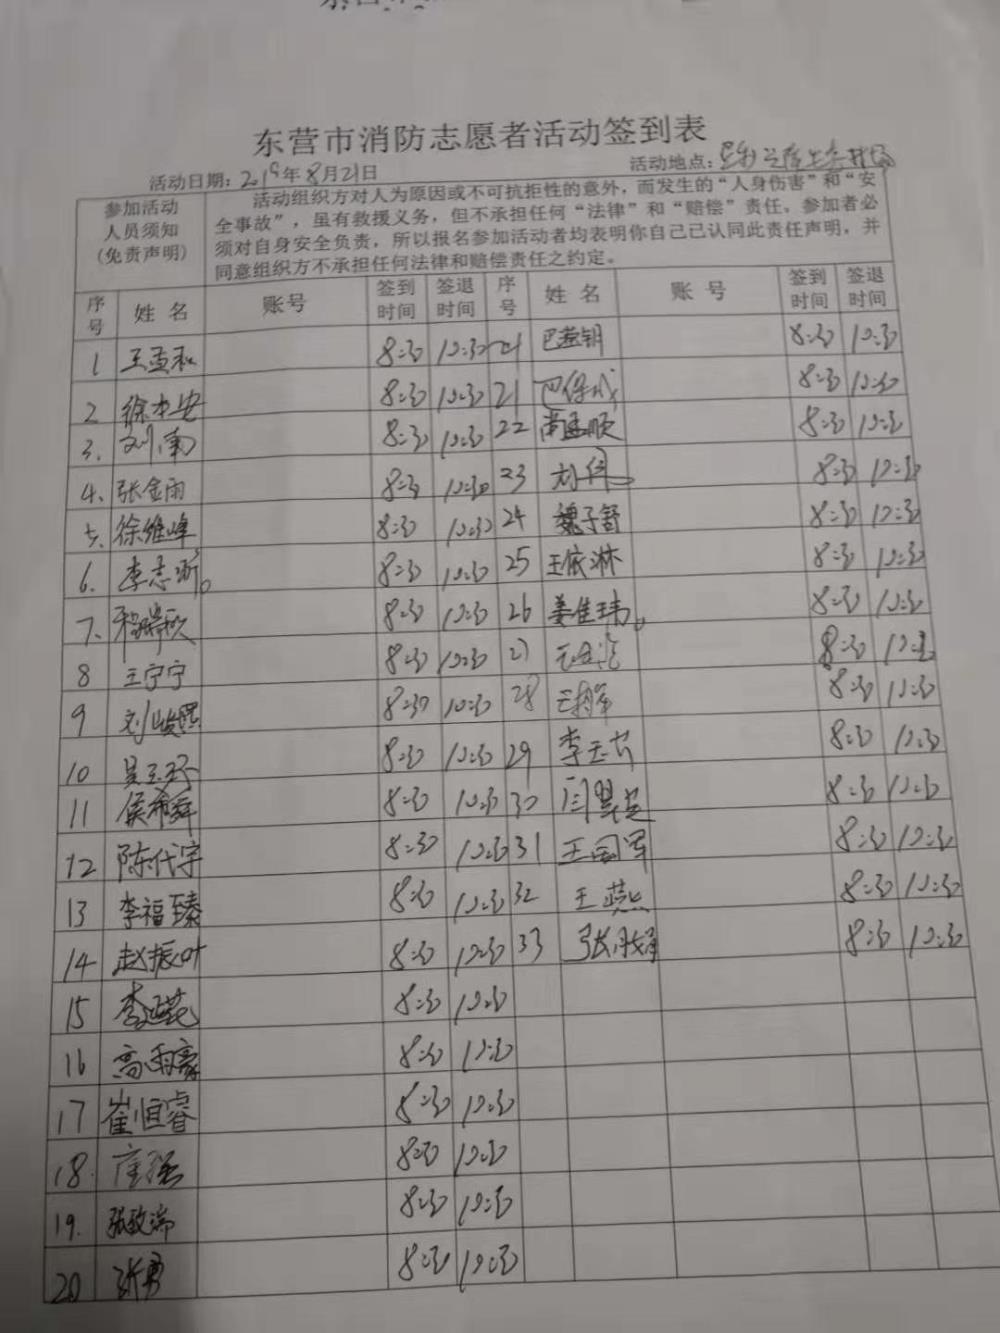 东营市消防志愿者活动签到表
活动日期：2019年8月21日 活动地点：
参加活动人员须知(免责声明)
活动组织方对人为原因或不可抗拒性的意外，而发生的“人身伤害”和“安
全事故”，虽有救援义务，但不承担任何“法律”和“赔偿”责任。参加者必
须对自身安全负责，所以报名参加活动者均表明你自己已认同此责任声明，并
同意组织方不承担任何法律和赔偿责任之约定。
序号 姓名 账号 签到时间 签退时间 序号 姓名 账号 签到时间 签退时间
1 王孟和 8:30 10:30 21 8:30 10:30
2 徐本安 8:30 10:30 21 巴保成 8:30 10:30
3. 刘南 8:30 10:30 22 尚孟顺 8:30 10:30
4. 张金雨 8:30 10:30 23 刘伟 8:30 10:30
5. 徐维峰 8:30 10:30 24 魏子舒 8:30 10:30
6. 李志昕 8:30 10:30 25 王依淋 8:30 10:30
7. 8:30 10:30 26 姜佳玮 8:30 10:30
8 王宁宁 8:30 10:30 27 8:30 10:30
9 刘峻熙 8:30 10:30 28 8:30 10:30
10 8:30 10:30 29 8:30 10:30
11 侯希舜 8:30 10:30 30 8:30 10:30
12 陈代宇 8:30 10:30 31 王国军 8:30 10:30
13 李福臻 8:30 10:30 32 王燕 8:30 10:30
14 赵振叶 8:30 10:30 33 8:30 10:30
15 李延花 8:30 10:30
16 高雨豪 8:30 10:30
17 崔恒睿 8:30 10:30
18. 8:30 10:30
19. 张致瑞 8:30 10:30
20 张勇 8:30 10:30